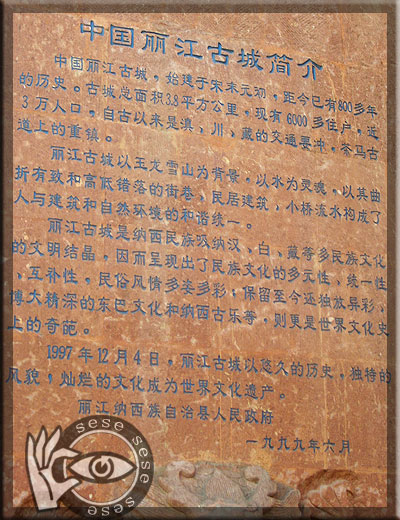 中国丽江古城简介
中国丽江古城，始建于宋末元初，距今已有800多年
的历史。古城总面积3.8平方公里，现有6000多住户，近
3万人口，自古以来是滇、川、藏的交通要冲，茶马古
道上的重镇。
丽江古城以玉龙雪山为背景，以水为灵魂，以其曲
折有致和高低错落的街巷、民居建筑，小桥流水构成了
人与建筑和自然环境的和谐统一。
丽江古城是纳西民族吸纳汉、白、藏等多民族文化
的文明结晶，因而呈现出了民族文化的多元性、统一性
、互补性。民俗风情多姿多彩；保留至今还独放异彩，
博大精深的东巴文化和纳西古乐等，则更是世界文化史
上的奇葩。
1997年12月4日，丽江古城以悠久的历史，独特的
风貌，灿烂的文化成为世界文化遗产。
丽江纳西族自治县人民政府
一九九九年六月
sese sese sese